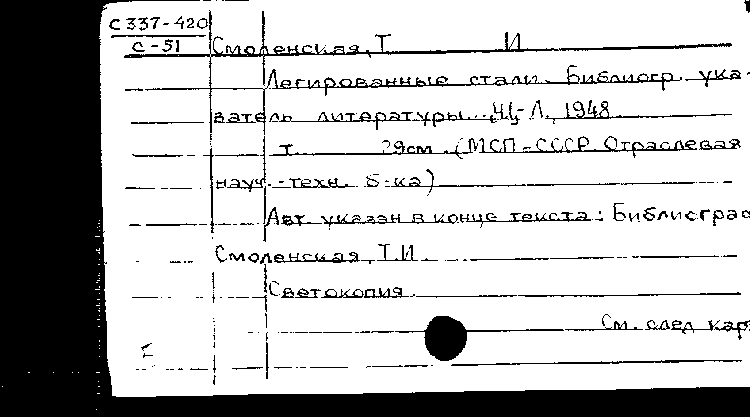 С 337-420
С-51
Смоленская, Т И
Легированные стали. Библиогр. ука-
затель литературы. М.-Л., 1948
т. 29см. (МСП-СССР Отраслевая
науч.-техн. б-ка)
Авт. указан в конце текста: Библиограф
Смоленская, Т.И.
Светокопия
См. след кар